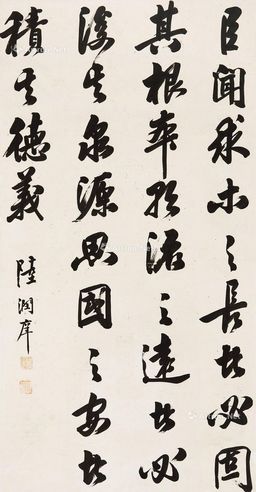 臣闻求木之長者必固
其根本欲流之遠者必
浚其泉源思國之安者
積其德義
陸潤庠